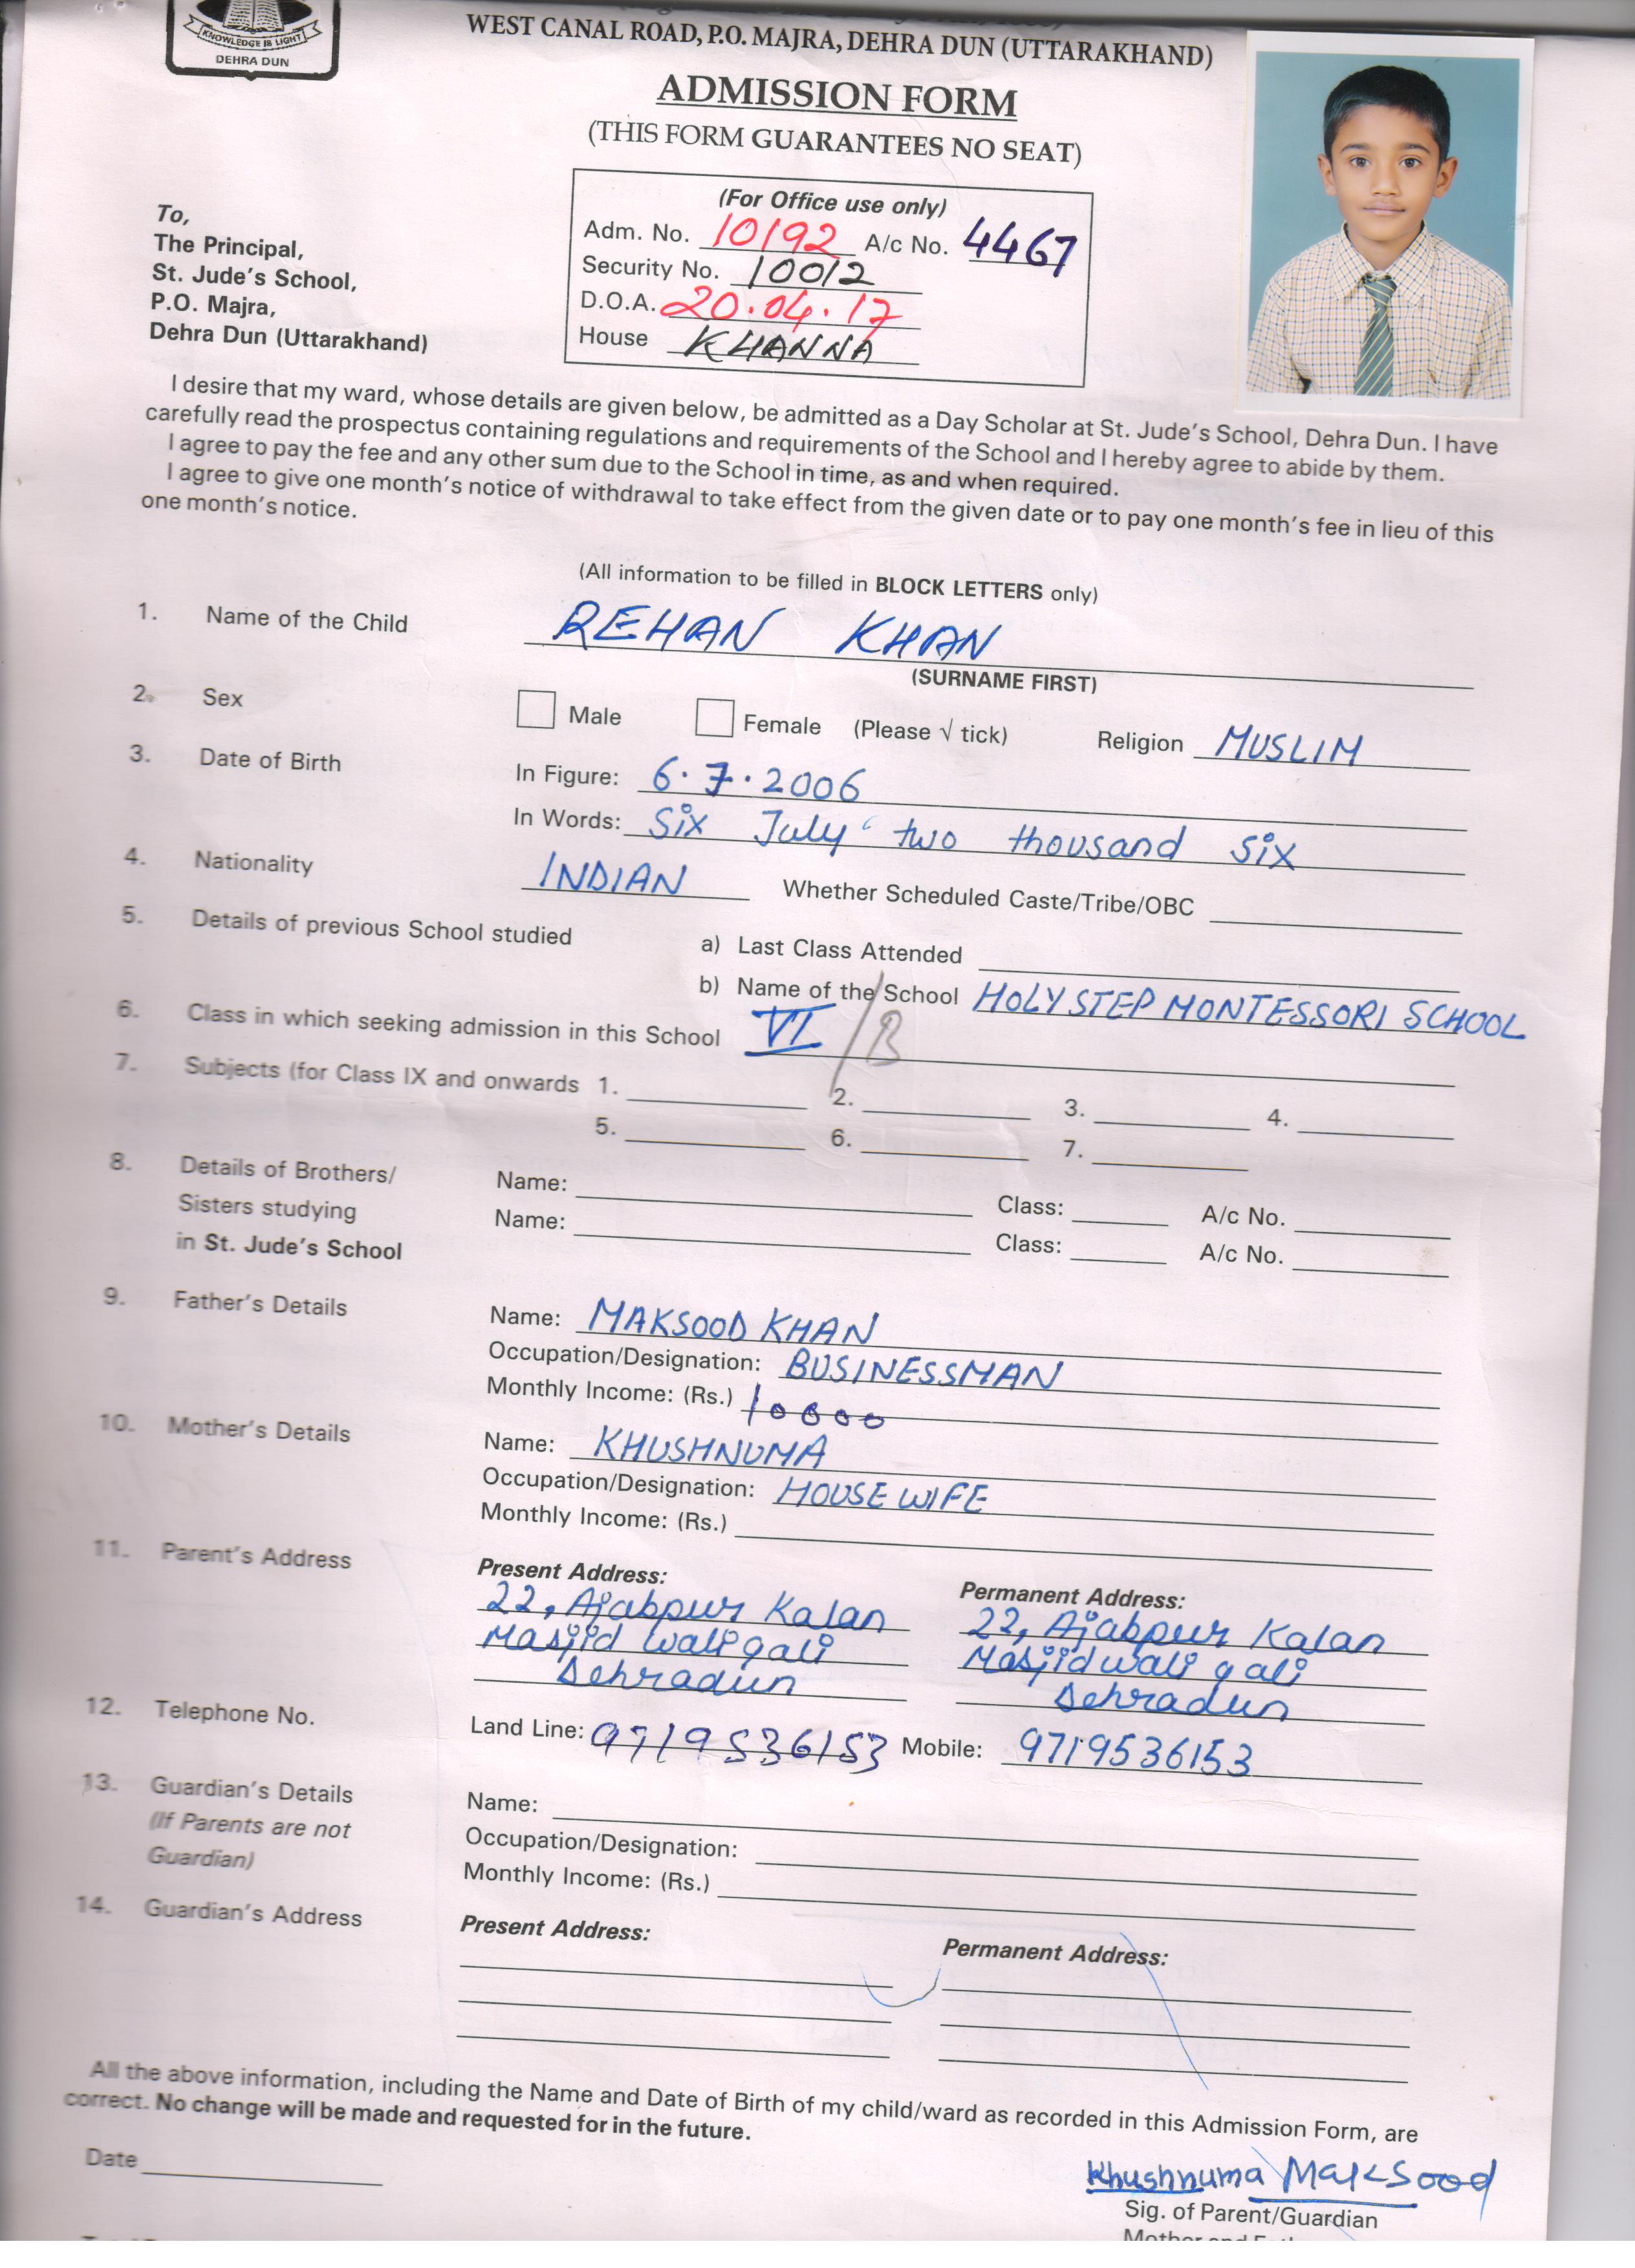 KNOWLEDGE IS LIGHT
DEHRA DUN
WEST CANAL ROAD, P.O. MAJRA, DEHRA DUN (UTTARAKHAND)
ADMISSION FORM
(THIS FORM GUARANTEES NO SEAT)
(For Office use only)
Adm. No. 10192 A/c No. 4467
Security No. 10012
D.O.A. 20.04.17
House KHANNA
To,
The Principal,
St. Jude's School,
P.O. Majra,
Dehra Dun (Uttarakhand)
I desire that my ward, whose details are given below, be admitted as a Day Scholar at St. Jude's School, Dehra Dun. I have
carefully read the prospectus containing regulations and requirements of the School and I hereby agree to abide by them.
I agree to pay the fee and any other sum due to the School in time, as and when required.
I agree to give one month's notice of withdrawal to take effect from the given date or to pay one month's fee in lieu of this
one month's notice.
(All information to be filled in BLOCK LETTERS only)
1. Name of the Child REHAN KHAN
(SURNAME FIRST)
2. Sex Male Female (Please √ tick) Religion MUSLIM
3. Date of Birth In Figure: 6.7.2006
In Words: Six July two thousand six
4. Nationality INDIAN Whether Scheduled Caste/Tribe/OBC
5. Details of previous School studied a) Last Class Attended
b) Name of the School HOLY STEP MONTESSORI SCHOOL
6. Class in which seeking admission in this School VI /B
7. Subjects (for Class IX and onwards 1. 2. 3. 4.
5. 6. 7.
8. Details of Brothers/ Name: Class: A/c No.
Sisters studying Name: Class: A/c No.
in St. Jude's School
9. Father's Details Name: MAKSOOD KHAN
Occupation/Designation: BUSINESSMAN
Monthly Income: (Rs.) 10000
10. Mother's Details Name: KHUSHNUMA
Occupation/Designation: HOUSE WIFE
Monthly Income: (Rs.)
11. Parent's Address Present Address: Permanent Address:
22, Ajabpur Kalan 22, Ajabpur Kalan
Masjid wali gali Masjid wali gali
Dehradun Dehradun
12. Telephone No. Land Line: 9719536153 Mobile: 9719536153
13. Guardian's Details Name:
(If Parents are not Occupation/Designation:
Guardian) Monthly Income: (Rs.)
14. Guardian's Address Present Address: Permanent Address:
All the above information, including the Name and Date of Birth of my child/ward as recorded in this Admission Form, are
correct. No change will be made and requested for in the future.
Date
Khushnuma Maksood
Sig. of Parent/Guardian